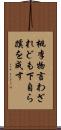 桃李物言わざ
れども下自ら
蹊を成す